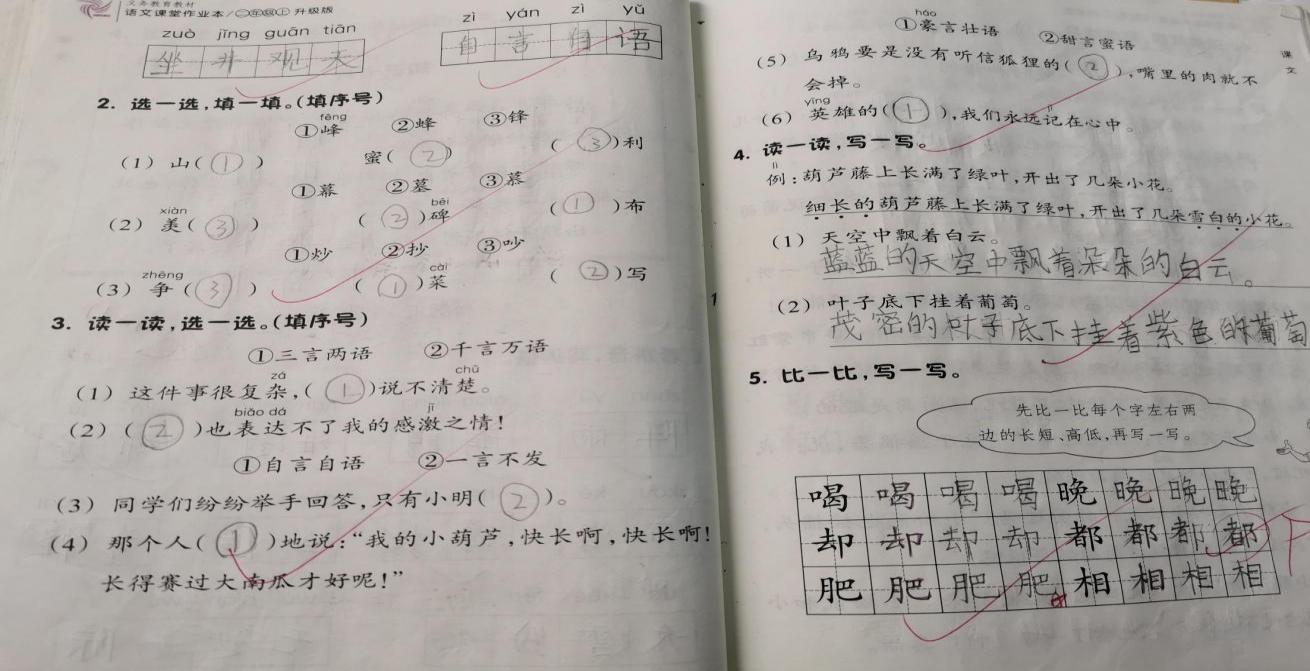 义务教育教材
语文课堂作业本/二年级上 升级版
zuò jǐng guān tiān
坐井观天
zì yán zì yǔ
自言自语
2. 选一选,填一填。(填序号)
fēng
①峰 ②蜂 ③锋
(1) 山(①) 蜜(②) (③)利
①幕 ②墓 ③慕
xiàn bēi
(2) 羡(③) (②)碑 (①)布
①炒 ②抄 ③吵
zhēng cài
(3) 争(③) (①)菜 (②)写
3. 读一读,选一选。(填序号)
①三言两语 ②千言万语
zá chǔ
(1) 这件事很复杂,(①)说不清楚。
biǎo dá jī
(2) (②)也表达不了我的感激之情!
①自言自语 ②一言不发
(3) 同学们纷纷举手回答,只有小明(②)。
(4) 那个人(①)地说:“我的小葫芦,快长啊,快长啊!
长得赛过大南瓜才好呢!”
háo
①豪言壮语 ②甜言蜜语
(5) 乌鸦要是没有听信狐狸的(②),嘴里的肉就不
会掉。
yīng
(6) 英雄的(①),我们永远记在心中。
课文
4. 读一读,写一写。
lì
例:葫芦藤上长满了绿叶,开出了几朵小花。
细长的葫芦藤上长满了绿叶,开出了几朵雪白的小花。
(1) 天空中飘着白云。
蓝蓝的天空中飘着朵朵的白云。
(2) 叶子底下挂着葡萄。
茂密的叶子底下挂着紫色的葡萄
5. 比一比,写一写。
先比一比每个字左右两
边的长短、高低,再写一写。
喝喝喝喝晚晚晚晚
却却却却都都都都
肥肥肥肥相相相相